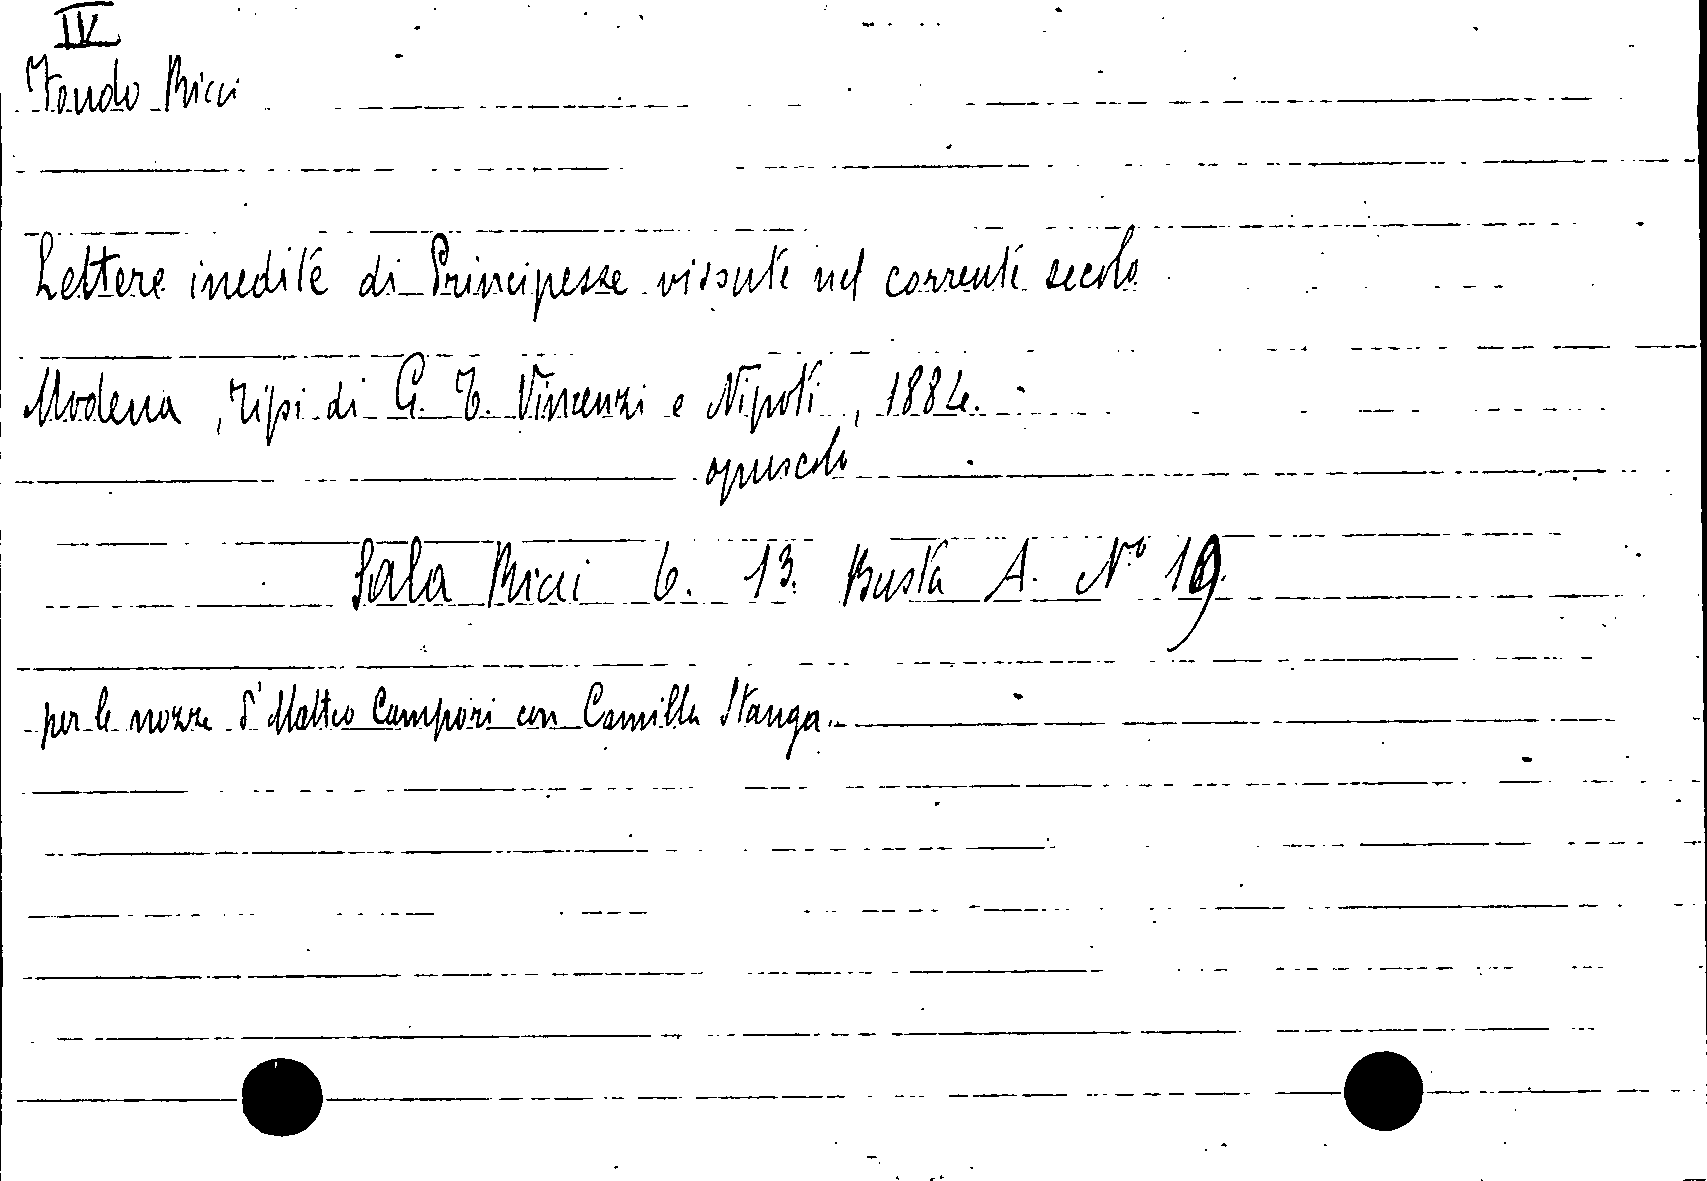 IV
Fondo Ricci
Lettere inedite di Principesse vissute nel corrente secolo
Modena, Tipi di G. T. Vincenzi e Nipoti, 1884.
opuscolo
Sala Ricci 6. 13. Busta A. N° 19.
per le nozze d' Matteo Campori con Camilla Stanga.